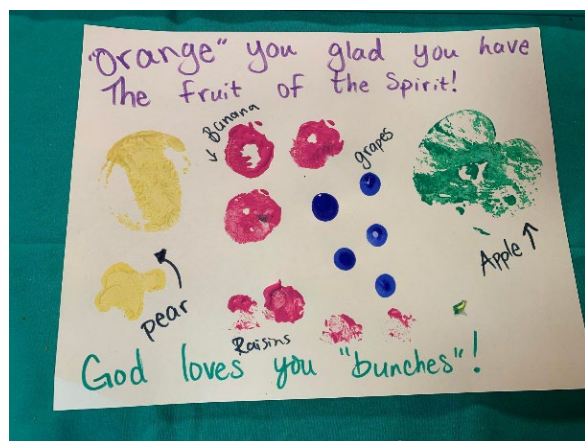 "Orange" you glad you have
The fruit of the Spirit!
Banana
grapes
Apple
pear
Raisins
God loves you "bunches"!